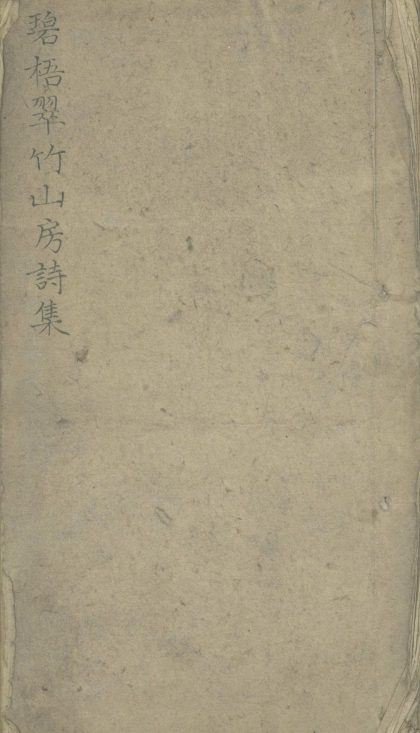 碧梧翠竹山房詩集